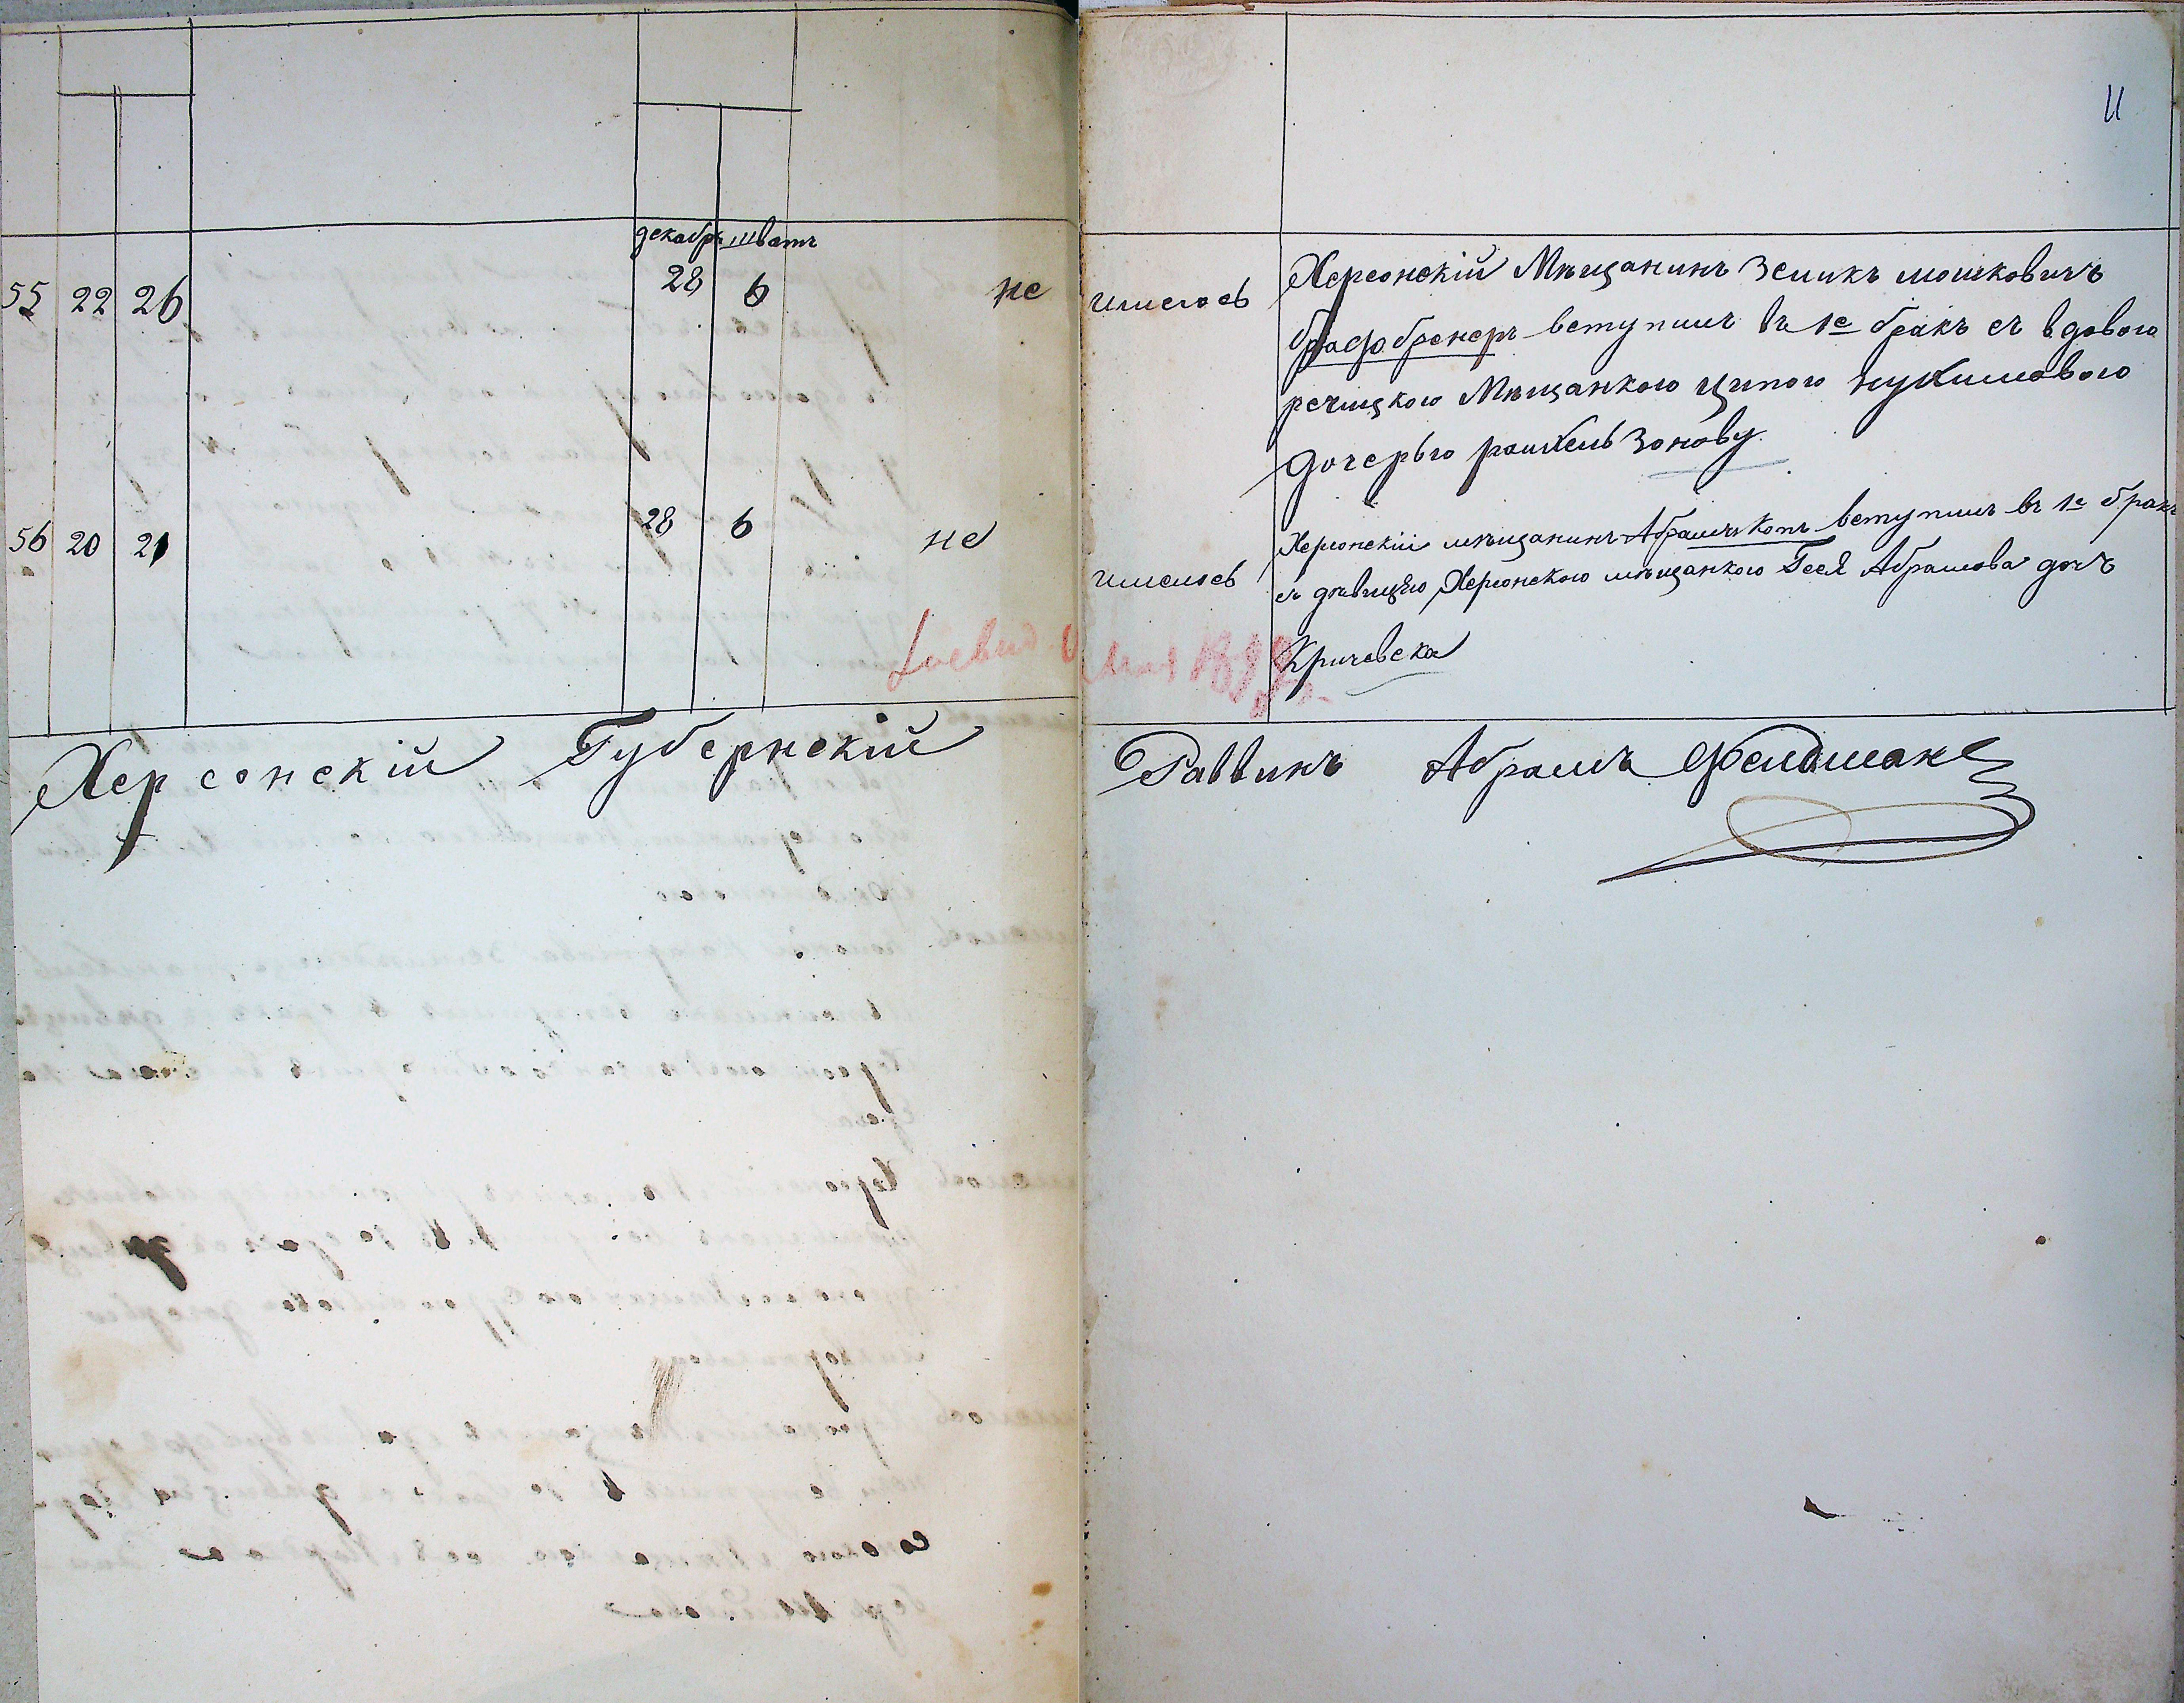 11
декабрь шватъ
55 22 26 28 6 не имелось
Херсонскій Мѣщанинъ Зеликъ мошковичъ
вступилъ въ 1е бракъ съ вдовою
речицкою Мѣщанкою ципою нухимовою
дочерью рашкель Зонову
56 20 21 28 6 не имелось
Херсонскій мѣщанинъ Абрамъ Котъ вступилъ въ 1е бракъ
съ дѣвицею Херсонскою мѣщанкою Геея Абрамова дочъ
Кричевска
Херсонскій Губернскій Раввинъ Абрамъ Фельдманъ